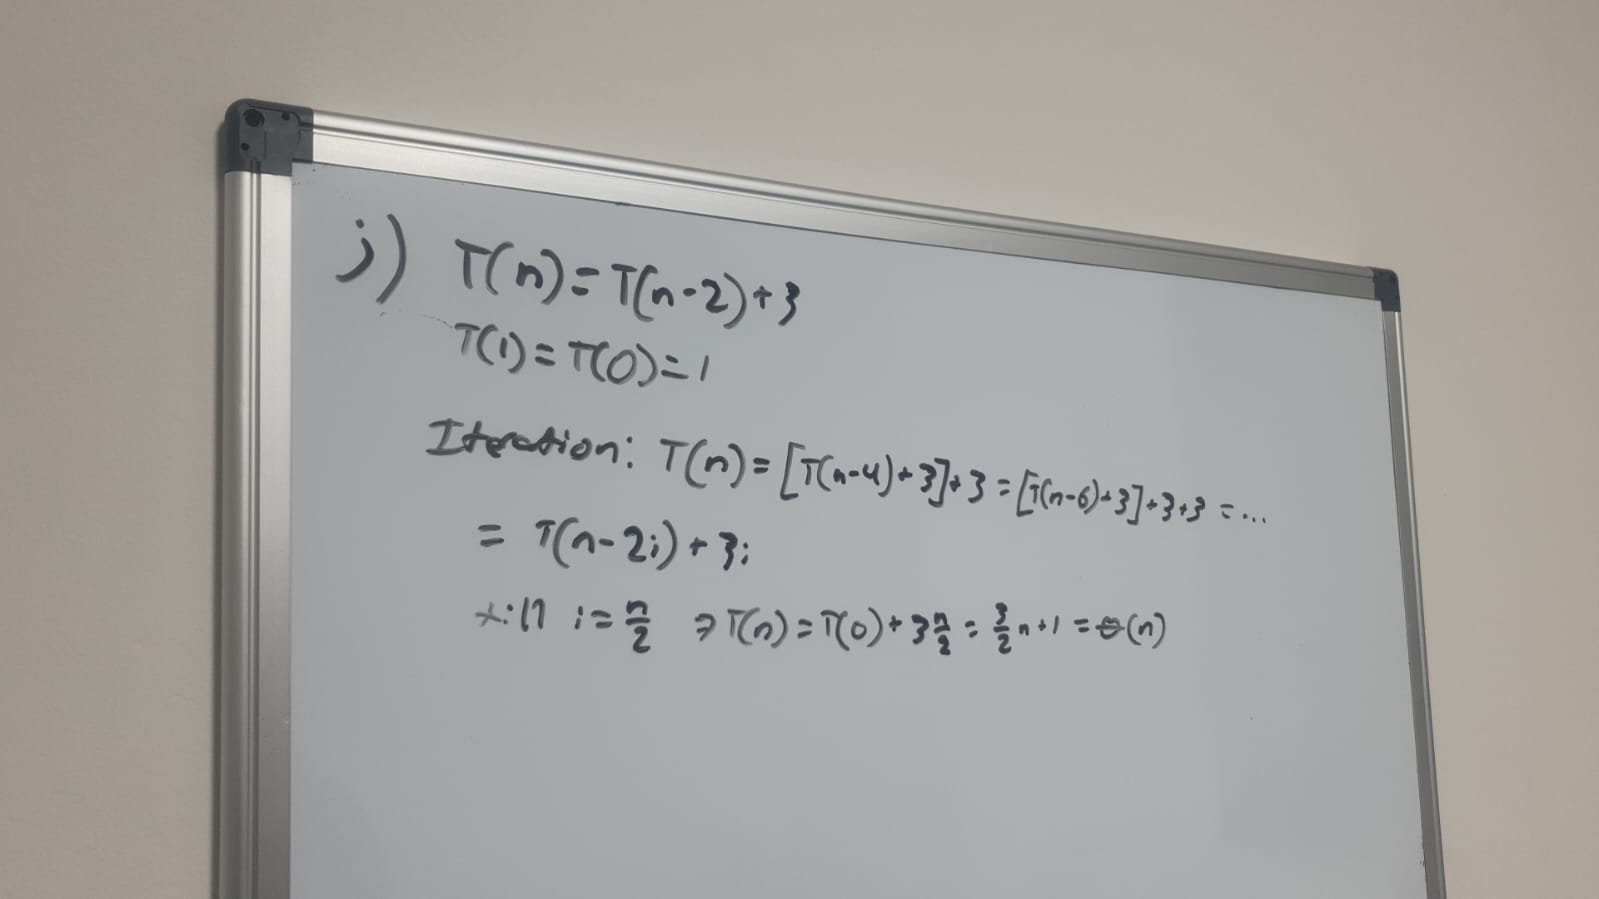 j) T(n)=T(n-2)+3
T(1)=T(0)=1
Iteration: T(n)=[T(n-4)+3]+3=[T(n-6)+3]+3+3=...
= T(n-2i)+3i
i=n/2 ⇒T(n)=T(0)+3n/2=3/2n+1=Θ(n)